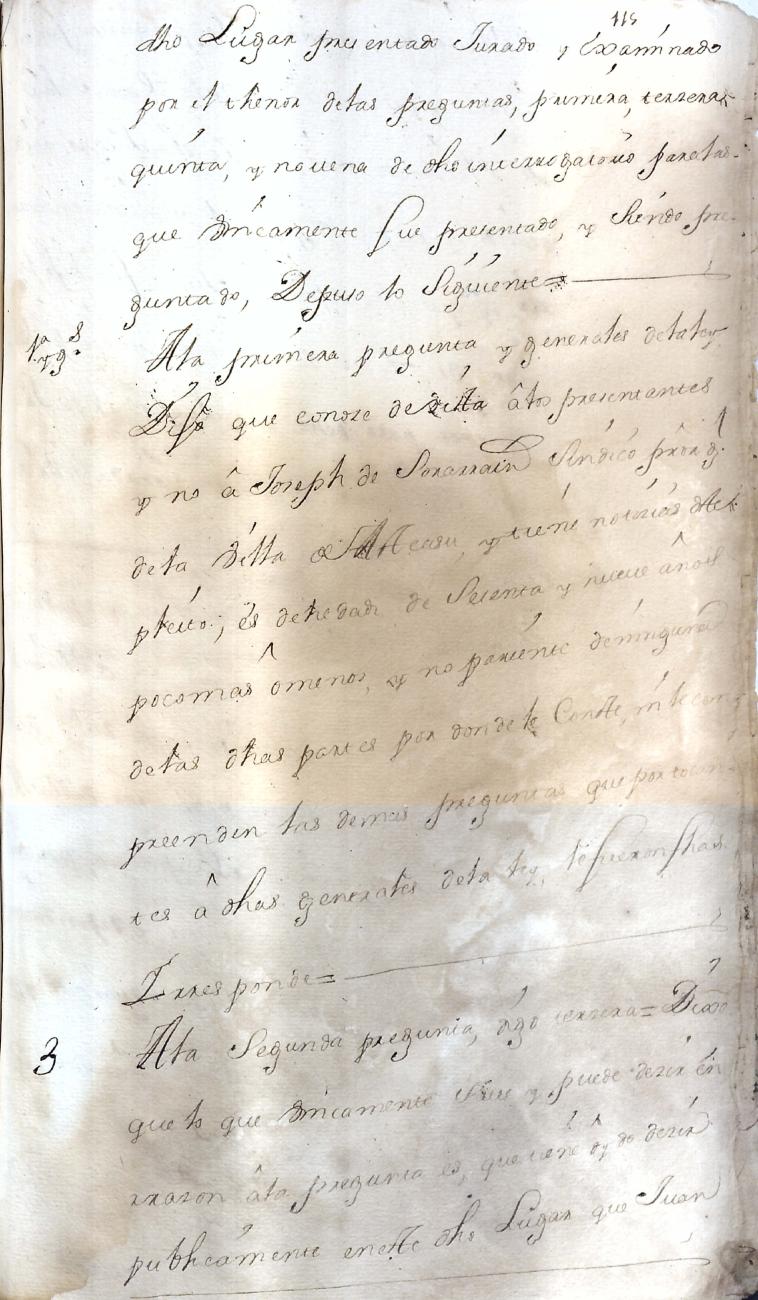 115
dho Lugar presentado Jurado y examinado
por el thenor delas preguntas, primera, terzera,
quinta, y novena de dho interrogatorio paralas
que unicamente fue presentado, y siendo pre
guntado, Depuso lo siguiente=
1ª y g.s
Ala primera pregunta y generales dela ley
Dijo que conoze de vista âlos presentantes
y no â Joseph de Sorarrain Sindico prôr g.l
dela Villa de Atteasu, y tiene notizias del
pleito; es de hedad de Setenta y nueve años
pocomas ômenos, y no pariente deninguna
delas dhas partes por donde le Contte, ni le com
preenden las demas preguntas que por tocan
tes â dhas generales dela ley, lefueron fhas
Irresponde=
3
Ala Segunda pregunta, digo terzera= Dixo
que lo que unicamente save y puede dezir en
rrazon âla pregunta es, que tiene ôydo dezir
publicamente eneste dho Lugar que Juan